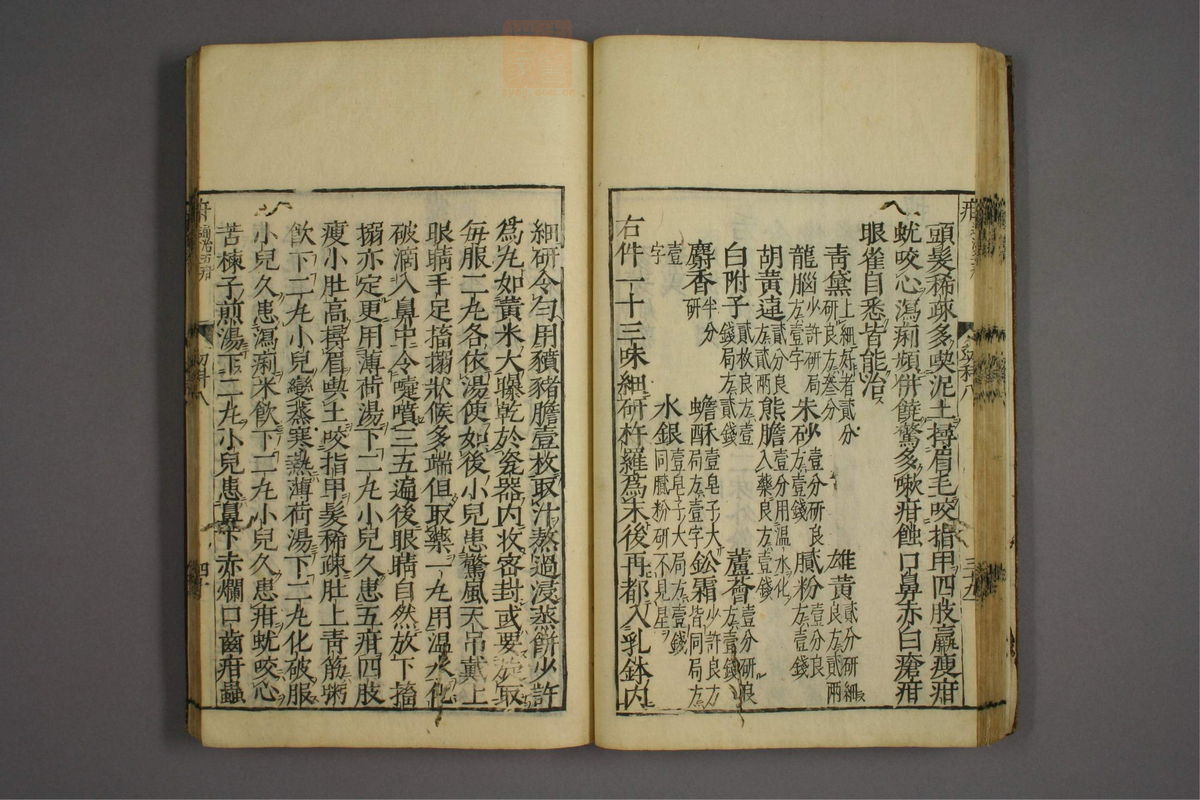 頭髮稀疎多喫泥土撏眉毛咬指甲四肢羸瘦疳
蚘咬心瀉痢頻併饒驚多嗽疳蝕口鼻赤白瘡疳
眼雀目悉皆能治
青黛上細好者貳分研良方叁分 雄黃貳分研細良方貳兩
龍腦少許研局方壹字 朱砂壹分研良方壹錢 膩粉壹分良方壹錢
胡黃連貳兩 熊膽壹分用温水化入藥良方壹錢
白附子貳枚良方壹錢局方貳錢 蘆薈壹分研良方壹錢
麝香半分研 蟾酥壹皂子大局方壹字 鈆霜少許良方皆同局方
壹字 水銀壹皂子大局方壹錢同膩粉研不見星
右件一十三味細研杵羅爲末後再都入乳鉢内
細研令勻用豶豬膽壹枚取汁熬過浸蒸餅少許
爲丸如黃米大曝乾於瓷器内收密封或要取
每服二丸各依湯使如後小兒患驚風天吊戴上
眼睛手足搐搦狀候多端但取藥一丸用温水化
破滴入鼻中令嚏噴三五遍後眼睛自然放下搐
搦亦定更用薄荷湯下二丸小兒久患五疳四肢
瘦小肚高撏眉喫土咬指甲髮稀疎肚上青筋粥
飲下二丸小兒變蒸寒熱薄荷湯下二丸化破服
小兒久患瀉痢米飲下二丸小兒久患疳蚘咬心
苦楝子煎湯下二丸小兒患鼻下赤爛口齒疳蟲